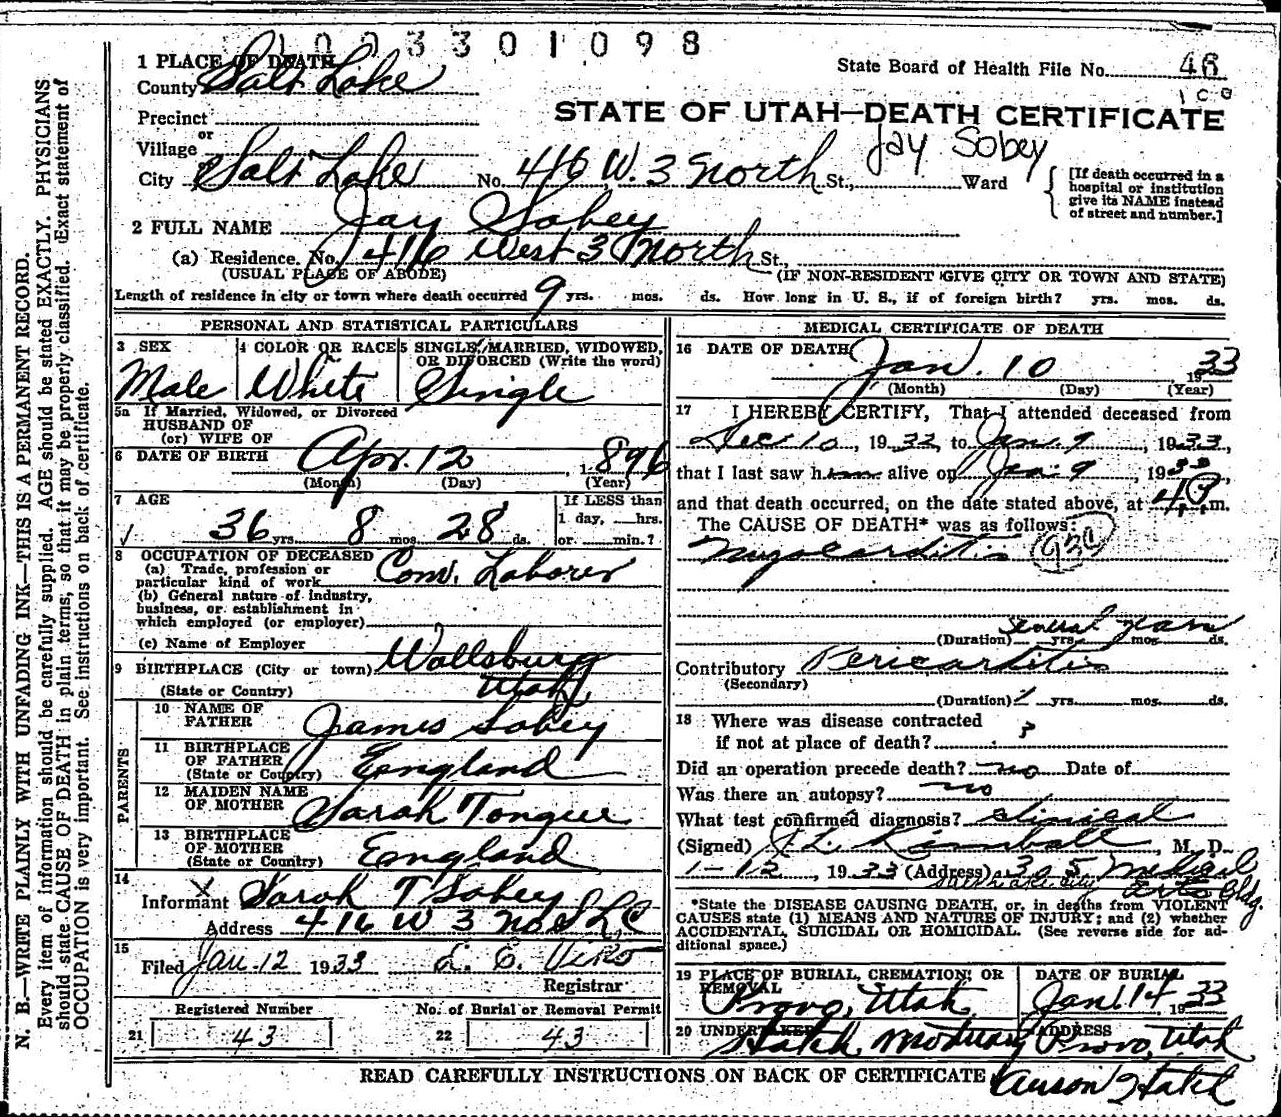 1003301098
1 PLACE OF DEATH
County Salt Lake
State Board of Health File No. 46
Precinct
or
Village
or
City Salt Lake No. 416 W. 3 North St., Ward
STATE OF UTAH—DEATH CERTIFICATE
Jay Sobey
[If death occurred in a
hospital or institution
give its NAME instead
of street and number.]
2 FULL NAME Jay Sobey
(a) Residence. No. 416 West 3 North St.,
(USUAL PLACE OF ABODE) (IF NON-RESIDENT GIVE CITY OR TOWN AND STATE)
Length of residence in city or town where death occurred 9 yrs. mos. ds. How long in U. S., if of foreign birth? yrs. mos. ds.
PERSONAL AND STATISTICAL PARTICULARS
3 SEX Male
4 COLOR OR RACE White
5 SINGLE, MARRIED, WIDOWED,
OR DIVORCED (Write the word)
Single
5a If Married, Widowed, or Divorced
HUSBAND OF
(or) WIFE OF
6 DATE OF BIRTH Apr. 12, 1896
(Month) (Day) (Year)
7 AGE
36 yrs 8 mos 28 ds.
If LESS than
1 day, hrs.
or min.?
8 OCCUPATION OF DECEASED
(a) Trade, profession or
particular kind of work Com. Laborer
(b) General nature of industry,
business, or establishment in
which employed (or employer)
(c) Name of Employer
9 BIRTHPLACE (City or town) Wallsburg
(State or Country) Utah
PARENTS
10 NAME OF
FATHER James Sobey
11 BIRTHPLACE
OF FATHER
(State or Country) England
12 MAIDEN NAME
OF MOTHER Sarah Tongue
13 BIRTHPLACE
OF MOTHER
(State or Country) England
14
Informant X Sarah T Sobey
Address 416 W 3 No S.L.C
15
Filed Jan. 12 1933
Registrar
Registered Number
21 43
No. of Burial or Removal Permit
22 43
MEDICAL CERTIFICATE OF DEATH
16 DATE OF DEATH Jan. 10 1933
(Month) (Day) (Year)
17 I HEREBY CERTIFY, That I attended deceased from
Dec 10, 1932, to Jan. 9, 1933,
that I last saw him alive on Jan. 9, 1933,
and that death occurred, on the date stated above, at 4 P.m.
The CAUSE OF DEATH* was as follows:
Myocarditis
(Duration) several years yrs. mos. ds.
Contributory Pericarditis
(Secondary)
(Duration) yrs. mos. ds.
18 Where was disease contracted
if not at place of death? ?
Did an operation precede death? no Date of
Was there an autopsy? no
What test confirmed diagnosis? clinical
(Signed) Kimball, M. D.
1-12, 1933 (Address) 305 Medical
Salt Lake City Arts Bldg.
*State the DISEASE CAUSING DEATH, or, in deaths from VIOLENT
CAUSES state (1) MEANS AND NATURE OF INJURY; and (2) whether
ACCIDENTAL, SUICIDAL OR HOMICIDAL. (See reverse side for ad-
ditional space.)
19 PLACE OF BURIAL, CREMATION, OR
REMOVAL
Provo, Utah
DATE OF BURIAL
Jan. 14 1933
20 UNDERTAKER
Hatch Mortuary
ADDRESS
Provo, Utah
READ CAREFULLY INSTRUCTIONS ON BACK OF CERTIFICATE
Hatch
N. B.—WRITE PLAINLY WITH UNFADING INK—THIS IS A PERMANENT RECORD.
Every item of information should be carefully supplied. AGE should be stated EXACTLY. PHYSICIANS
should state CAUSE OF DEATH in plain terms, so that it may be properly classified. Exact statement of
OCCUPATION is very important. See instructions on back of certificate.